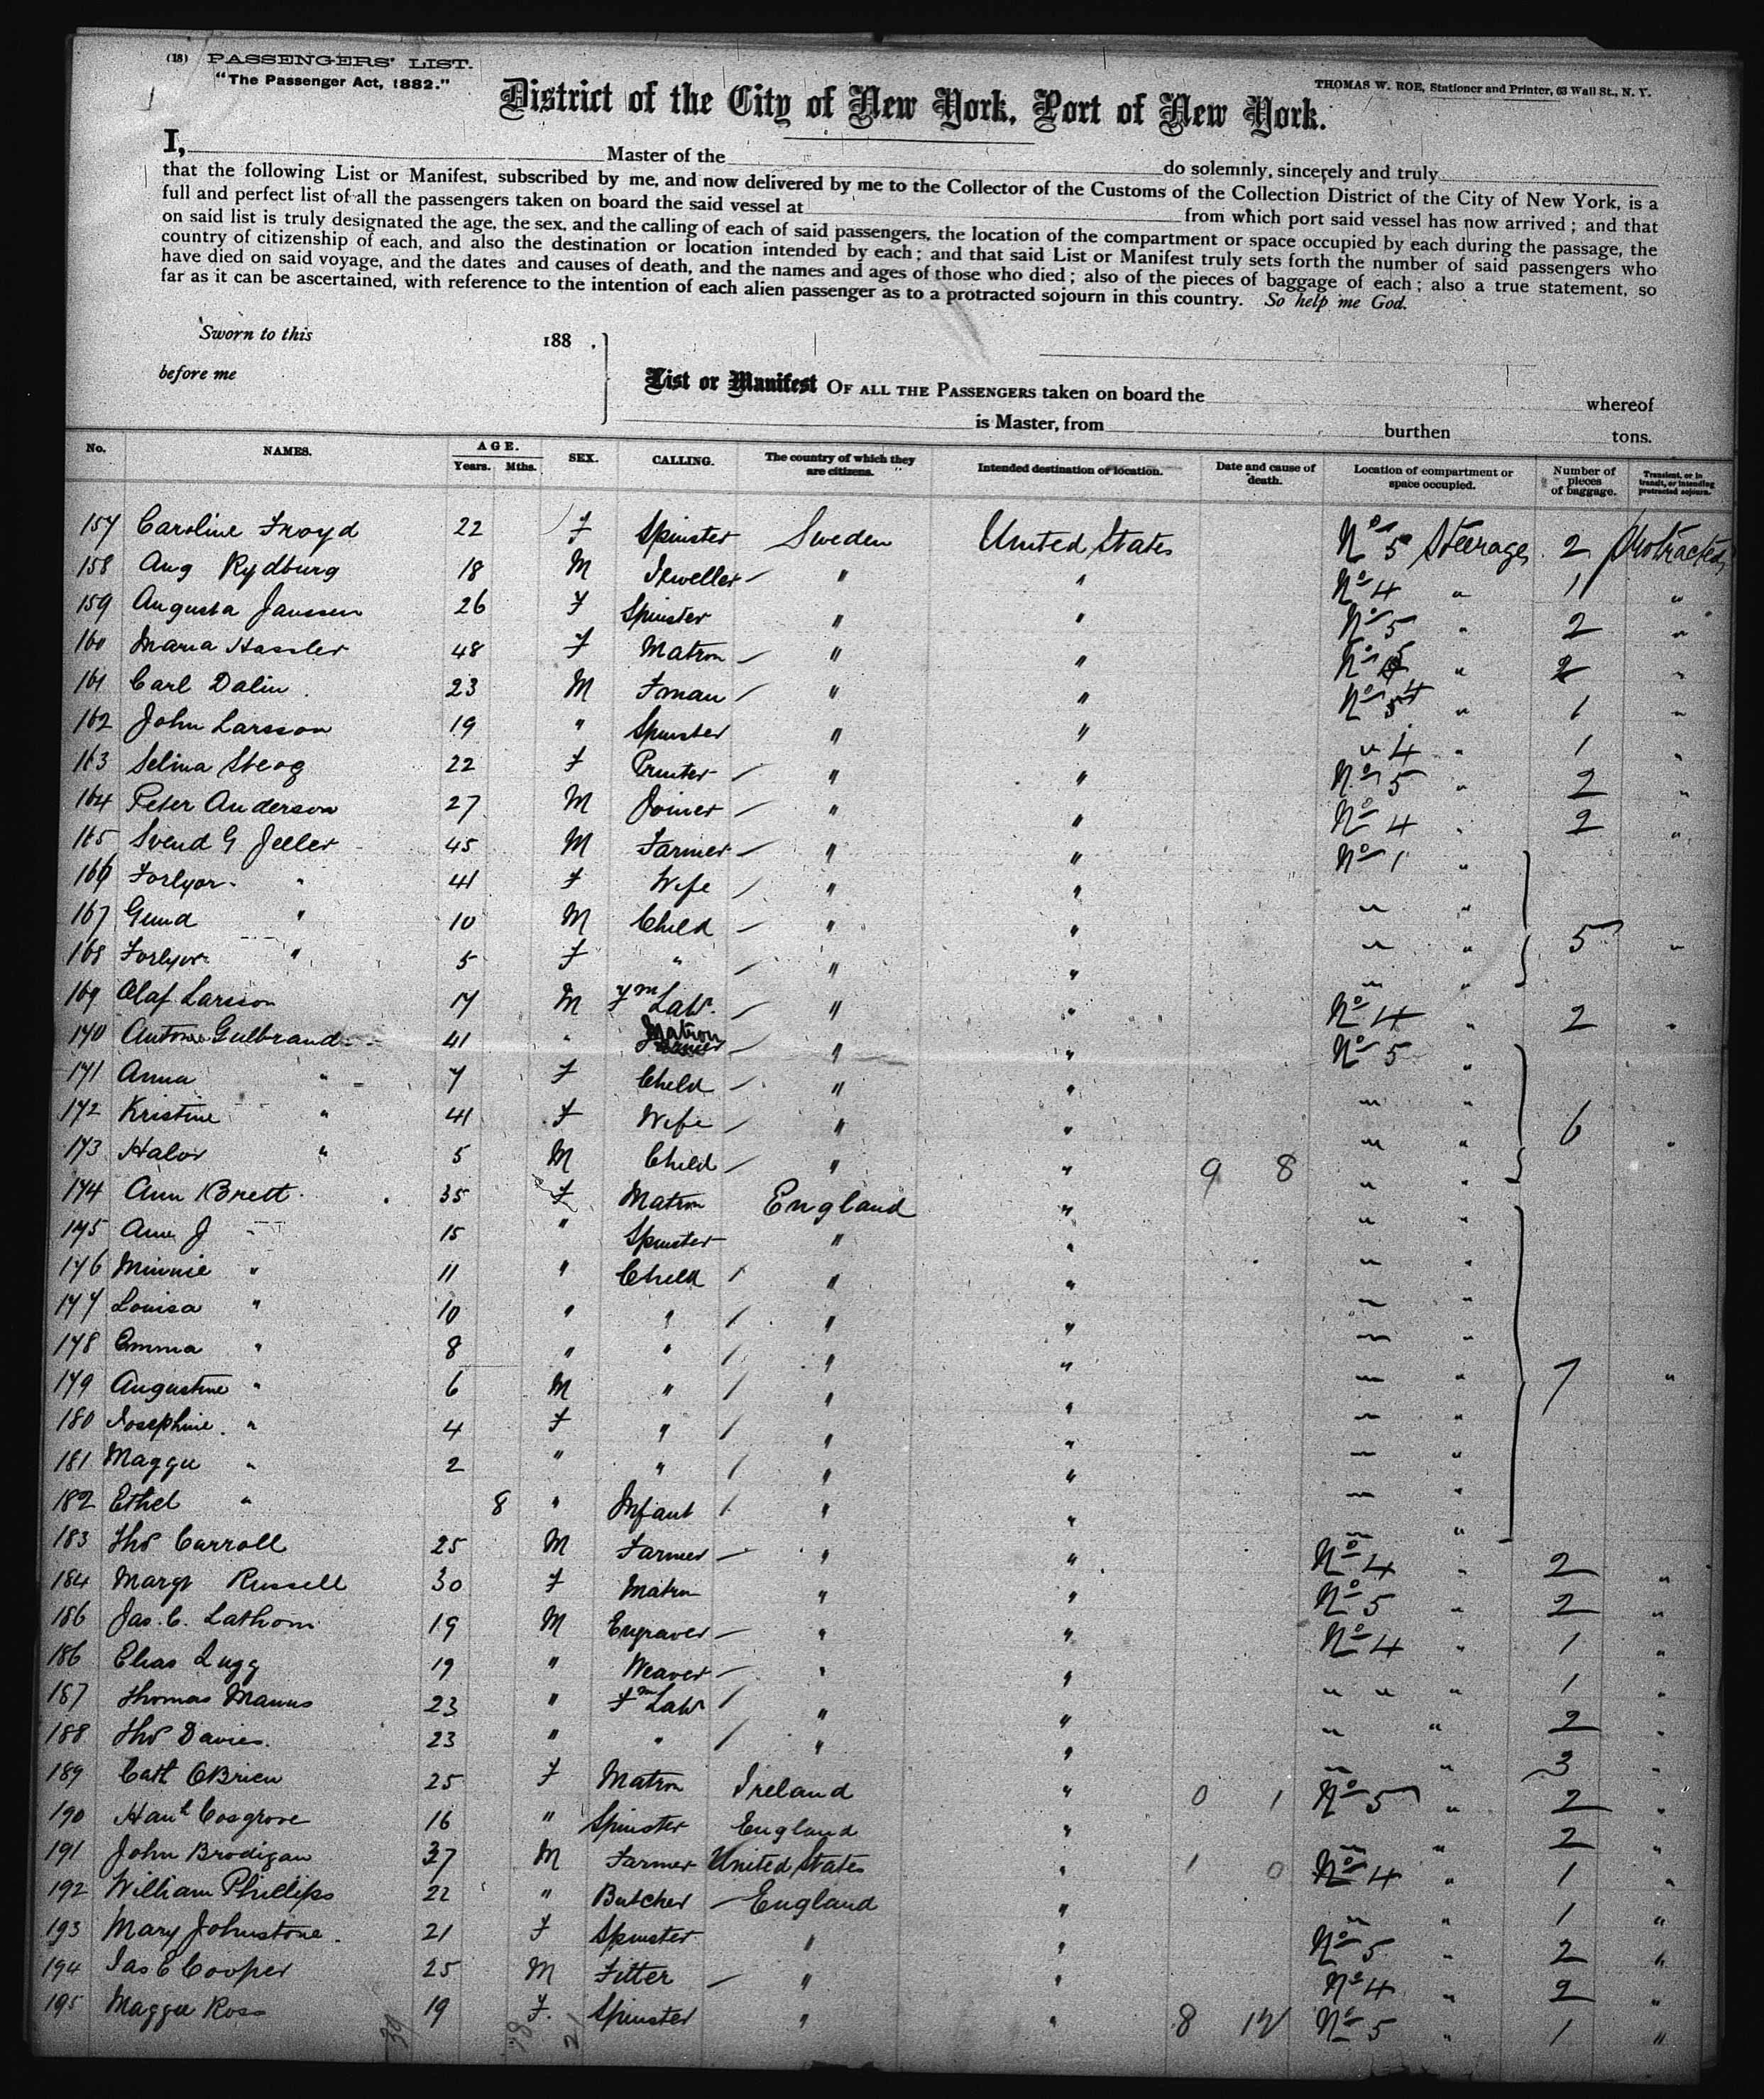 (18) PASSENGERS' LIST.
"The Passenger Act, 1882."
THOMAS W. ROE, Stationer and Printer, 63 Wall St., N. Y.
District of the City of New York, Port of New York.
I, Master of the do solemnly, sincerely and truly
that the following List or Manifest, subscribed by me, and now delivered by me to the Collector of the Customs of the Collection District of the City of New York, is a
full and perfect list of all the passengers taken on board the said vessel at from which port said vessel has now arrived; and that
on said list is truly designated the age, the sex, and the calling of each of said passengers, the location of the compartment or space occupied by each during the passage, the
country of citizenship of each, and also the destination or location intended by each; and that said List or Manifest truly sets forth the number of said passengers who
have died on said voyage, and the dates and causes of death, and the names and ages of those who died; also of the pieces of baggage of each; also a true statement, so
far as it can be ascertained, with reference to the intention of each alien passenger as to a protracted sojourn in this country. So help me God.
Sworn to this 188 .
before me
List or Manifest OF ALL THE PASSENGERS taken on board the whereof
is Master, from burthen tons.
No. NAMES. AGE. Years. Mths. SEX. CALLING. The country of which they are citizens. Intended destination or location. Date and cause of death. Location of compartment or space occupied. Number of pieces of baggage. Transient, or in transit, or intending protracted sojourn.
157 Caroline Froyd 22 F Spinster Sweden United States No 5 Steerage 2 Protracted
158 Aug Rydburg 18 M Jeweller " " No 4 " 1 "
159 Augusta Janssen 26 F Spinster " " No 5 " 2 "
160 Maria Hassler 48 F Matron " " No 5 " 2 "
161 Carl Dalin 23 M Fman " " No 4 " 1 "
162 John Larsson 19 " Spinster " " " 4 " 1 "
163 Selina Skog 22 F Printer " " No 5 " 2 "
164 Peter Anderson 27 M Joiner " " No 4 " 2 "
165 Svend G Jeller 45 M Farmer " " No 1 "
166 " 41 F Wife " " " "
167 Gund " 10 M Child " " " " 5 "
168 " 5 F " " " " "
169 Olaf Larsson 17 M Fm Labr " " No 4 " 2 "
170 Gulbrand 41 " Matron " " No 5 "
171 Anna " 7 F Child " " " "
172 Kristine " 41 F Wife " " " " 6 "
173 Halvor " 5 M Child " " 9 8 " "
174 Ann Brett 35 F Matron England " " "
175 Ann J " 15 " Spinster " " " "
176 Minnie " 11 " Child " " " "
177 Louisa " 10 " " " " " "
178 Emma " 8 " " " " " "
179 Augustine " 6 M " " " " " 7 "
180 Josephine " 4 F " " " " "
181 Maggie " 2 " " " " " "
182 Ethel " 8 " Infant " " " "
183 Thos Carroll 25 M Farmer " " No 4 " 2 "
184 Margt Russell 30 F Matron " " No 5 " 2 "
186 Jas. C. Lathom 19 M Engraver " " No 4 " 1 "
186 Elias Lugg 19 " Weaver " " " " " 1 "
187 Thomas Manns 23 " Fm Labr " " " " 2 "
188 Thos Davies 23 " " " " " " 3 "
189 Cath OBrien 25 F Matron Ireland " 0 1 No 5 " 2 "
190 Hanh Cosgrove 16 " Spinster England " " " 2 "
191 John Brodigan 37 M Farmer United States " 1 0 No 4 " 1 "
192 William Phillips 22 " Butcher England " " " 1 "
193 Mary Johnstone 21 F Spinster " " No 5 " 2 "
194 Jas E Cooper 25 M Fitter " " No 4 " 2 "
195 Maggie Ross 19 F. Spinster " " 8 12 No 5 " 1 "
39 18 21